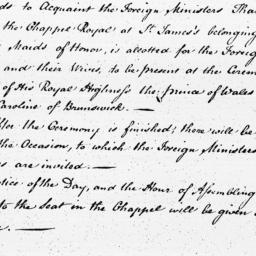 ds to Acquaint the Foreign Ministers Tha
the Chappel Royal at St. James's belonging
Maids of Honor, is allotted for the Foreig
and their Wives, to be present at the Cerem
of His Royal Highness the prince of Wales
Caroline of Brunswick.—
After the Ceremony is finished; there will be
the Occasion, to which the Foreign Ministers
are invited.—
tice of the Day, and the Hour of Assembling
to the Seat in the Chappel will be given